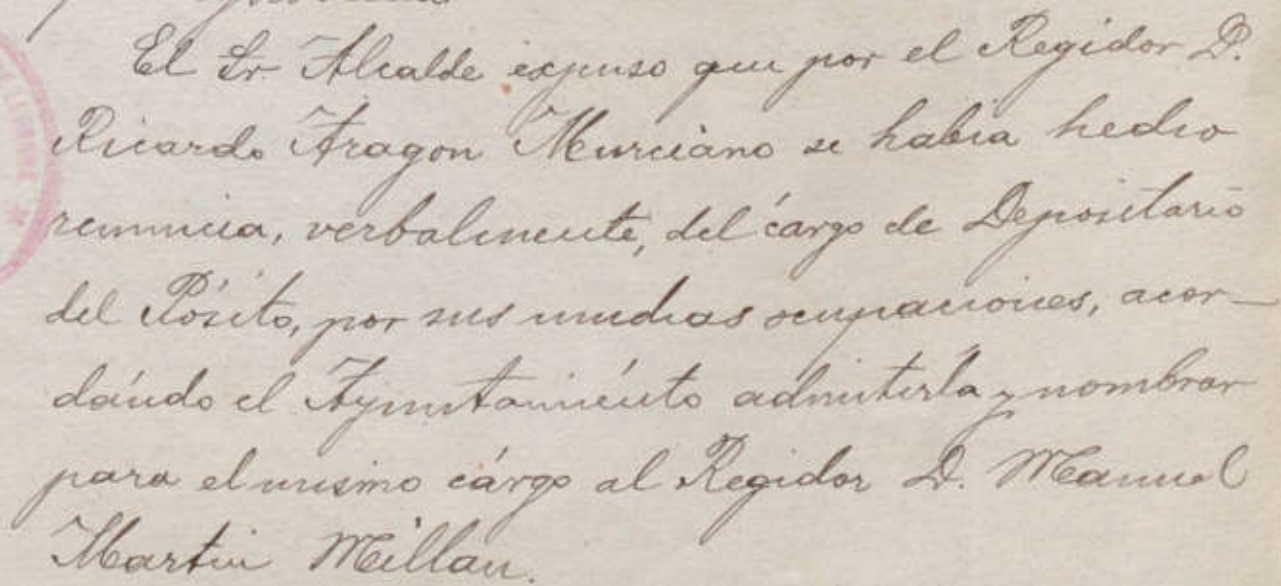 El Sr Alcalde expuso que por el Regidor D.
Ricardo Aragon Murciano se habia hecho
renuncia, verbalmente, del cárgo de Depositario
del Pósito, por sus muchas ocupaciones, acor-
dándo el Ayuntamiénto admitirla y nombrar
para el mismo cárgo al Regidor D. Manuel
Martin Millan.